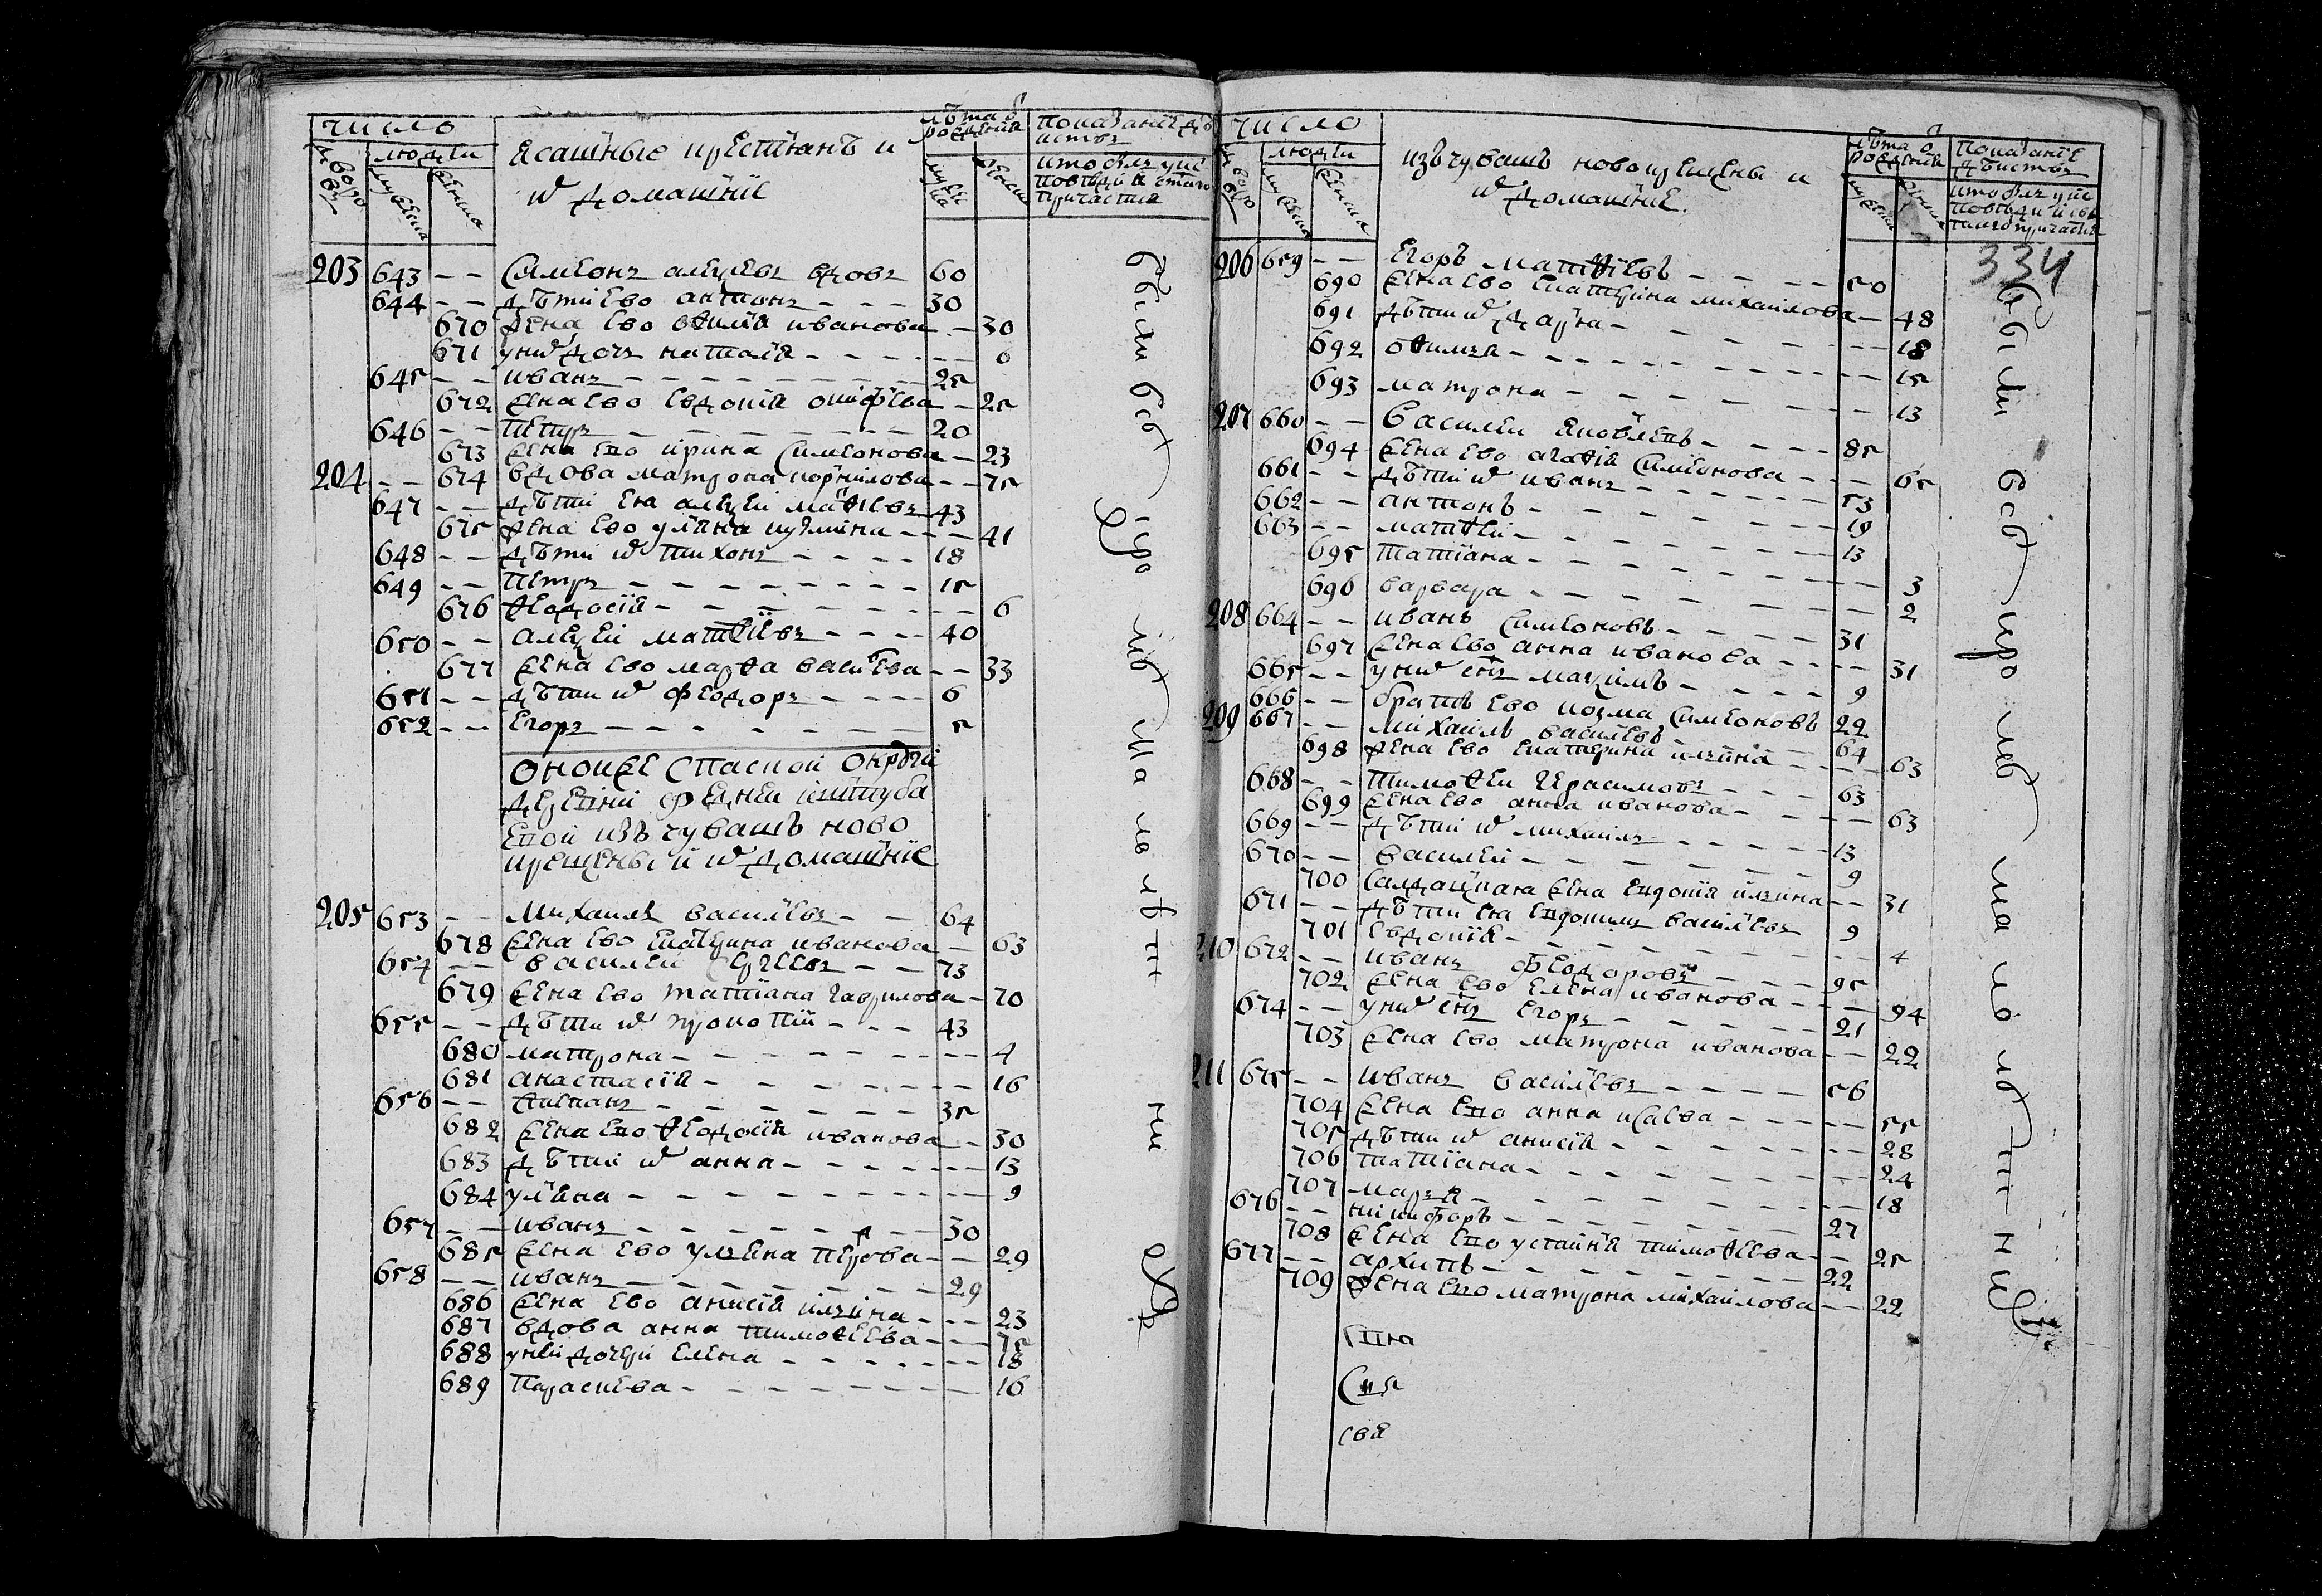 число
дворовъ
люди
мужеска
женска
Ясашные крестіянъ и
ихъ домашніе
лѣта ѿ рожденія
мужеска
женска
показаніе дѣйствъ
кто былъ у исповѣди и стаго причастія
203 643 – – Симеонъ алеѯѣевъ вдовъ 60
644 – – дѣти ево антонъ – – – 30
670 жена ево иванова – – 30
671 у них дочь наталія – – – – – – 0
645 – – иванъ – – – – – – – – 25
672 жена ево евдокія – – 25
646 – – петръ – – – – – – – 20
673 жена ево ирина Симеонова – 23
204 – – 674 вдова матрона корнилова – – 75
647 – – дѣти ея алеѯѣй 43
675 жена ево уліяна кузмина – – – 41
648 – – дѣти их тихонъ – – – – 18
649 – – петръ – – – – – – – – 15
676 ѳеодосія – – – – – – – – – 6
650 – – алеѯѣй матвѣевъ – – – – 40
677 жена ево марѳа – – 33
651 – – дѣти их ѳеодоръ – – – – 6
652 – – егоръ – – – – – – – – 5
оной же Спаской округи
деревни
изъ чувашъ ново
крещены и их домашніе
205 653 – – михаилъ василіевъ – – 64
678 жена ево екатерина иванова – 63
654 – – василей Сергеевъ – – 73
679 жена ево татіана гаврилова – 70
655 – – дѣти их прокопій – – – 43
680 матрона – – – – – – – – – 4
681 анастасія – – – – – – – – 16
656 – – степанъ – – – – – – 35
682 жена ево ѳеодосія иванова – – 30
683 дѣти их анна – – – – – – – 13
684 уліяна – – – – – – – – – – 9
657 – – иванъ – – – – – – – – 30
685 жена ево улъяна петрова – – 29
658 – – иванъ – – – – – – – – 29
686 жена ево анисія илъина – – – 23
687 вдова анна тимоѳеева – – – 75
688 у ней дочери елена – – – – – – – 18
689 параскева – – – – – – – – – 16
были всѣ
число
люди
мужеска
женска
изъ чувашъ новокрещены и
ихъ домашніе.
лѣта ѿ рожденія
мужеска
женска
показаніе дѣйствъ
кто былъ у исповѣди и святаго причастія
334
206 659 – – егоръ матѳіевъ – – – – 50
690 жена ево екатерина михаилова – 48
691 дѣти их дарья – – – – – – – 18
692 – – – – – – – – – 15
693 матрона – – – – – – – – – 13
207 660 – – василеи яковлевъ – – – – 85
694 жена ево агаѳія Симеонова – – – 65
661 – – дѣти их иванъ – – – – – – 53
662 – – антонъ – – – – – – – – 19
663 – – матѳей – – – – – – – – 13
695 татіана – – – – – – – – – 3
696 варвара – – – – – – – – – 2
208 664 – – иванъ Симеоновъ – – – – 31
697 жена ево анна иванова – – – – 31
665 – – у них снъ маѯимъ – – – – – 9
666 – – братъ ево козма Симеоновъ 22
209 667 – – михаилъ василіевъ – – – – 64
698 жена ево екатерина илъина – – – 63
668 – – тимоѳеи герасимовъ – – – 63
699 жена ево анна иванова – – – – – 63
669 – – дѣти их михаилъ – – – – – 13
670 – – василей – – – – – – – 9
700 Салдацкая жена евдокія илъина – – 31
671 – – дѣти ея василіевъ 9
701 евдокія – – – – – – – – – 4
210 672 – – иванъ ѳеодоровъ – – – – 95
702 жена ево елена иванова – – – – 94
674 – – у них снъ егоръ – – – – – – 21
703 жена ево матрона иванова – – 22
211 675 – – иванъ василіевъ – – – – – 56
704 жена ево анна исаева – – – – – 55
705 дѣти их анисія – – – – – – – 28
706 татіана – – – – – – – – – 24
707 марѳа – – – – – – – – – – 18
676 – – никифоръ – – – – – – – 27
708 жена ево устинія тимоѳеева – – 25
677 – – архипъ – – – – – – – – 22
709 жена ево матрона михаилова – – 22
свя
были всѣ